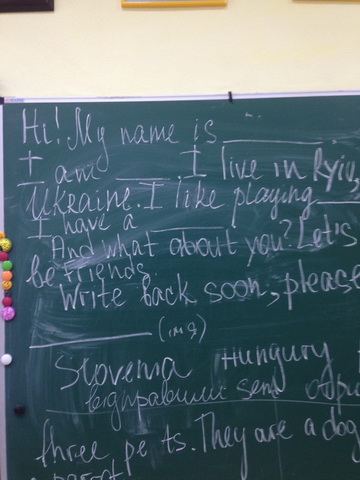 Hi! My name is ________
I am ____. I live in Kyiv,
Ukraine. I like playing ____
I have a ______.
And what about you? Let's
be friends.
Write back soon, please
________ (імя)
Slovenia Hungury
відправили send
three pets. They are a dog
parrot